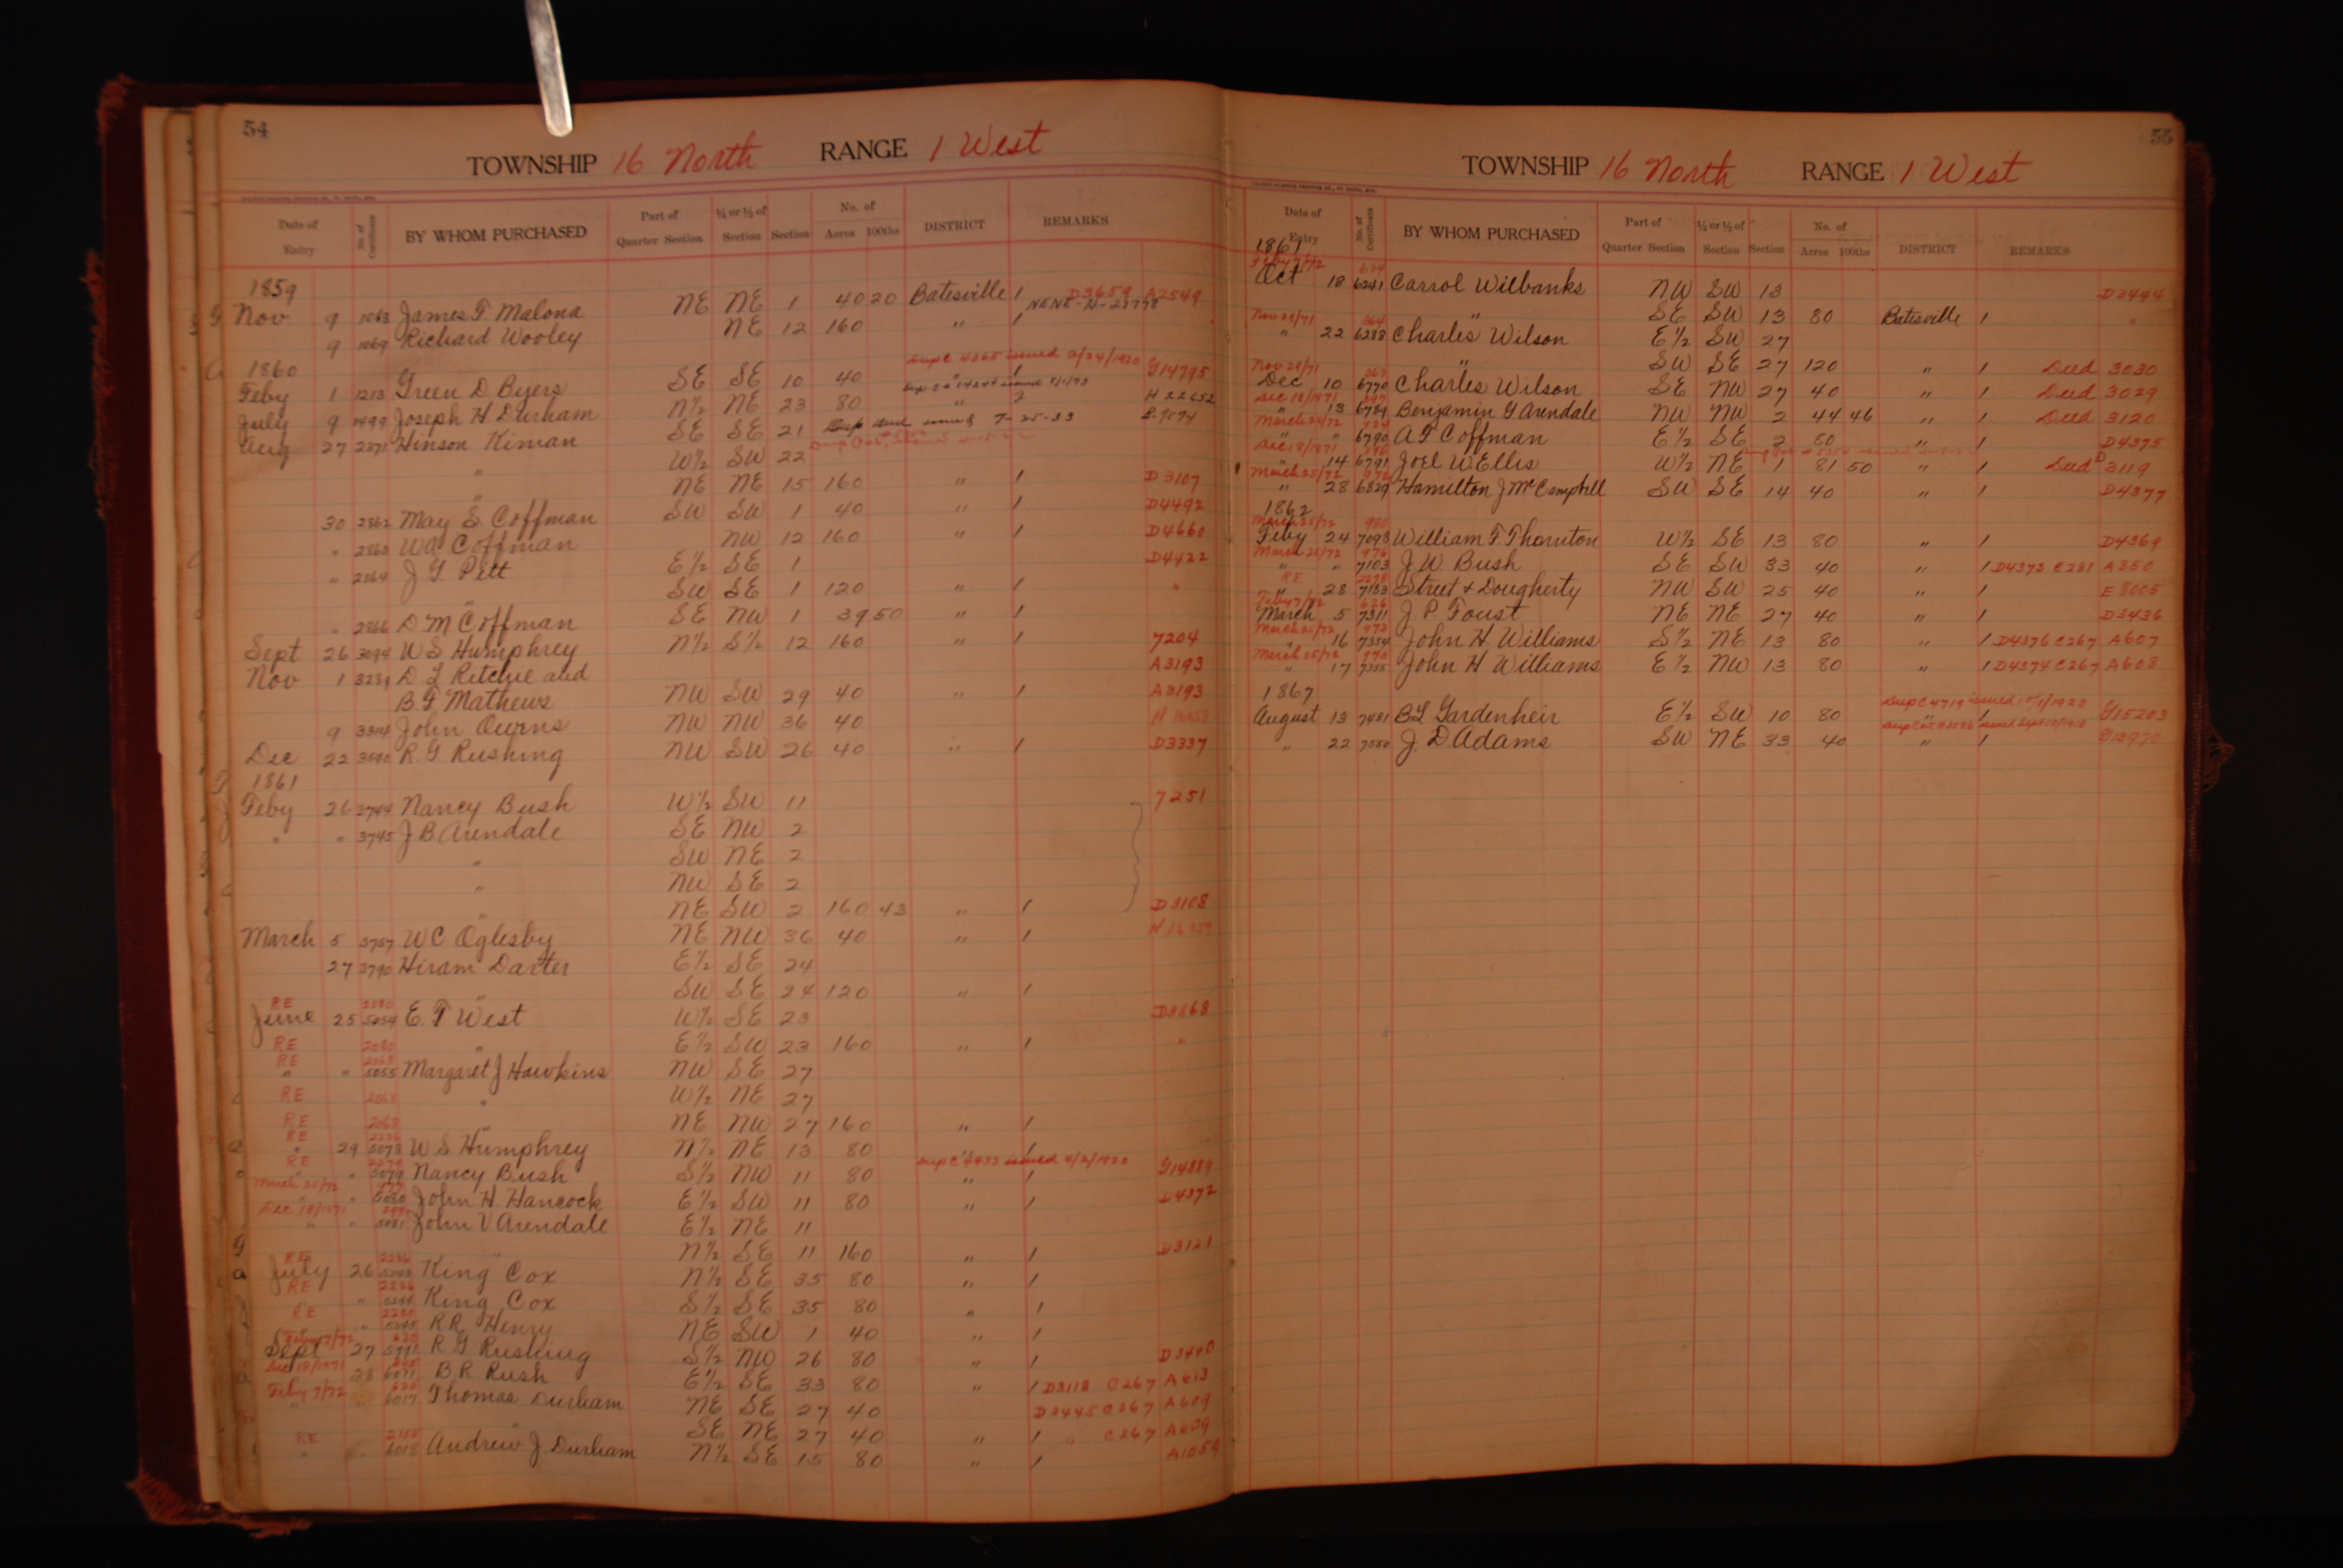 54
TOWNSHIP 16 North RANGE 1 West
Date of Entry No. of Certificate BY WHOM PURCHASED Part of Quarter Section ¼ or ½ of Section Section No. of Acres 100ths DISTRICT REMARKS
1859
Nov 9 1068 James F Malona NE NE 1 40 20 Batesville 1 D3659 A2549
NENE-H-21798
9 1069 Richard Wooley NE 12 160 " 1
1860
Dup C 4365 issued 2/24/1920
Feby 1 1213 Green D Byers SE SE 10 40 1 G14795
July 9 1499 Joseph H Durham N½ NE 23 80 " 2 H 22652
Aug 27 2271 Hinson Kiman SE SE 21 7-25-33
" W½ SW 22
" NE NE 15 160 " 1 D3107
30 2862 May S Coffman SW SW 1 40 " 1 D4492
" 2863 WA Coffman NW 12 160 " 1 D4660
" 2864 J G Pitt E½ SE 1 D4422
" SW SE 1 120 " 1 "
" 2866 D M Coffman SE NW 1 39 50 " 1
Sept 26 3094 W S Humphrey N½ S½ 12 160 " 1 7204
Nov 1 3289 D L Ritchie and A3193
B. F. Mathews NW SW 29 40 " 1 A3193
9 3314 John Owens NW NW 36 40
Dec 22 3590 R. G Rushing NW SW 26 40 " 1 D3337
1861
Feby 26 3744 Nancy Bush W½ SW 11 7251
" " 3745 J B Arendale SE NW 2
" SW NE 2
" NW SE 2
" NE SW 2 160 43 " 1 D3108
March 5 3757 W C Oglesby NE NW 36 40 " 1
27 3790 Hiram Darter E½ SE 24
" SW SE 24 120 " 1
RE 2080
June 25 5054 E. T West W½ SE 23 D3868
RE 2080 " E½ SW 23 160 " 1 "
RE 2068
" " 5055 Margaret J Hawkins NW SE 27
RE 2068 " W½ NE 27
RE 2068 " NE NW 27 160 " 1
RE 2236
" 29 5073 W S Humphrey N½ NE 13 80 " 1
RE 2279 Dup C 4433 issued 4/2/1920
" 5079 Nancy Bush S½ NW 11 80 " 1 G14889
March 25/72 977
" " 5080 John H. Hancock E½ SW 11 80 " 1 D4372
Dec 18/1871
" " 5081 John V Arendale E½ NE 11
" N½ SE 11 160 " 1 D3121
RE 2236
July 26 King Cox N½ SE 35 80 " 1
RE 2236
" King Cox S½ SE 35 80 " 1
RE 2280
" R R Henry NE SW 1 40 " 1
Feby 7/72 630
Sept 27 R G Rushing S½ NW 26 80 " 1 D3440
Dec 18/1871
28 6011 B R Rush E½ SE 33 80 " 1 D3118 C267 A613
Feby 7/72
6017 Thomas Durham NE SE 27 40 D3445 C267 A609
" SE NE 27 40 " 1 " C267 A609
RE
" " 6018 Andrew J. Durham N½ SE 15 80 " 1 A1059
55
TOWNSHIP 16 North RANGE 1 West
Date of Entry No. of Certificate BY WHOM PURCHASED Part of Quarter Section ¼ or ½ of Section Section No. of Acres 100ths DISTRICT REMARKS
1861
Feby 7/72 634
Oct 18 6241 Carrol Wilbanks NW SW 13 D3444
" SE SW 13 80 Batesville 1 "
Nov 29/71 364
" 22 6288 Charles Wilson E½ SW 27
" SW SE 27 120 " 1 Deed 3030
Nov 29/71 363
Dec 10 6770 Charles Wilson SE NW 27 40 " 1 Deed 3029
Dec 18/1871 297
" 13 6789 Benjamin G Arendale NW NW 2 44 46 " 1 Deed 3120
March 25/72 974
" " 6790 A F Coffman E½ SE 2 80 " 1 D4375
Dec 18/1871 296
" 14 6791 Joel W Ellis W½ NE 1 81 50 " 1 Deed D3119
March 25/72 972
" 28 6829 Hamilton J McCampbell SW SE 14 40 " 1 D4377
1862
March 25/72 980
Feby 24 7098 William F Thornton W½ SE 13 80 " 1 D4369
March 25/72 976
" " 7103 J. W. Bush SE SW 33 40 " 1 D4373 C281 A850
RE 2278
" 28 7183 Street & Dougherty NW SW 25 40 " 1 E8005
Feby 7/72 626
March 5 7311 J. P Foust NE NE 27 40 " 1 D3436
March 25/72 973
" 16 7354 John H. Williams S½ NE 13 80 " 1 D4376 C267 A607
March 25/72 975
" 17 7355 John H Williams E½ NW 13 80 " 1 D4374 C267 A608
1867
Dup C 4719 issued 10/1/1920
August 13 7481 B L Gardenheir E½ SW 10 80 " 1 G15203
" 22 7550 J. D Adams SW NE 33 40 " 1